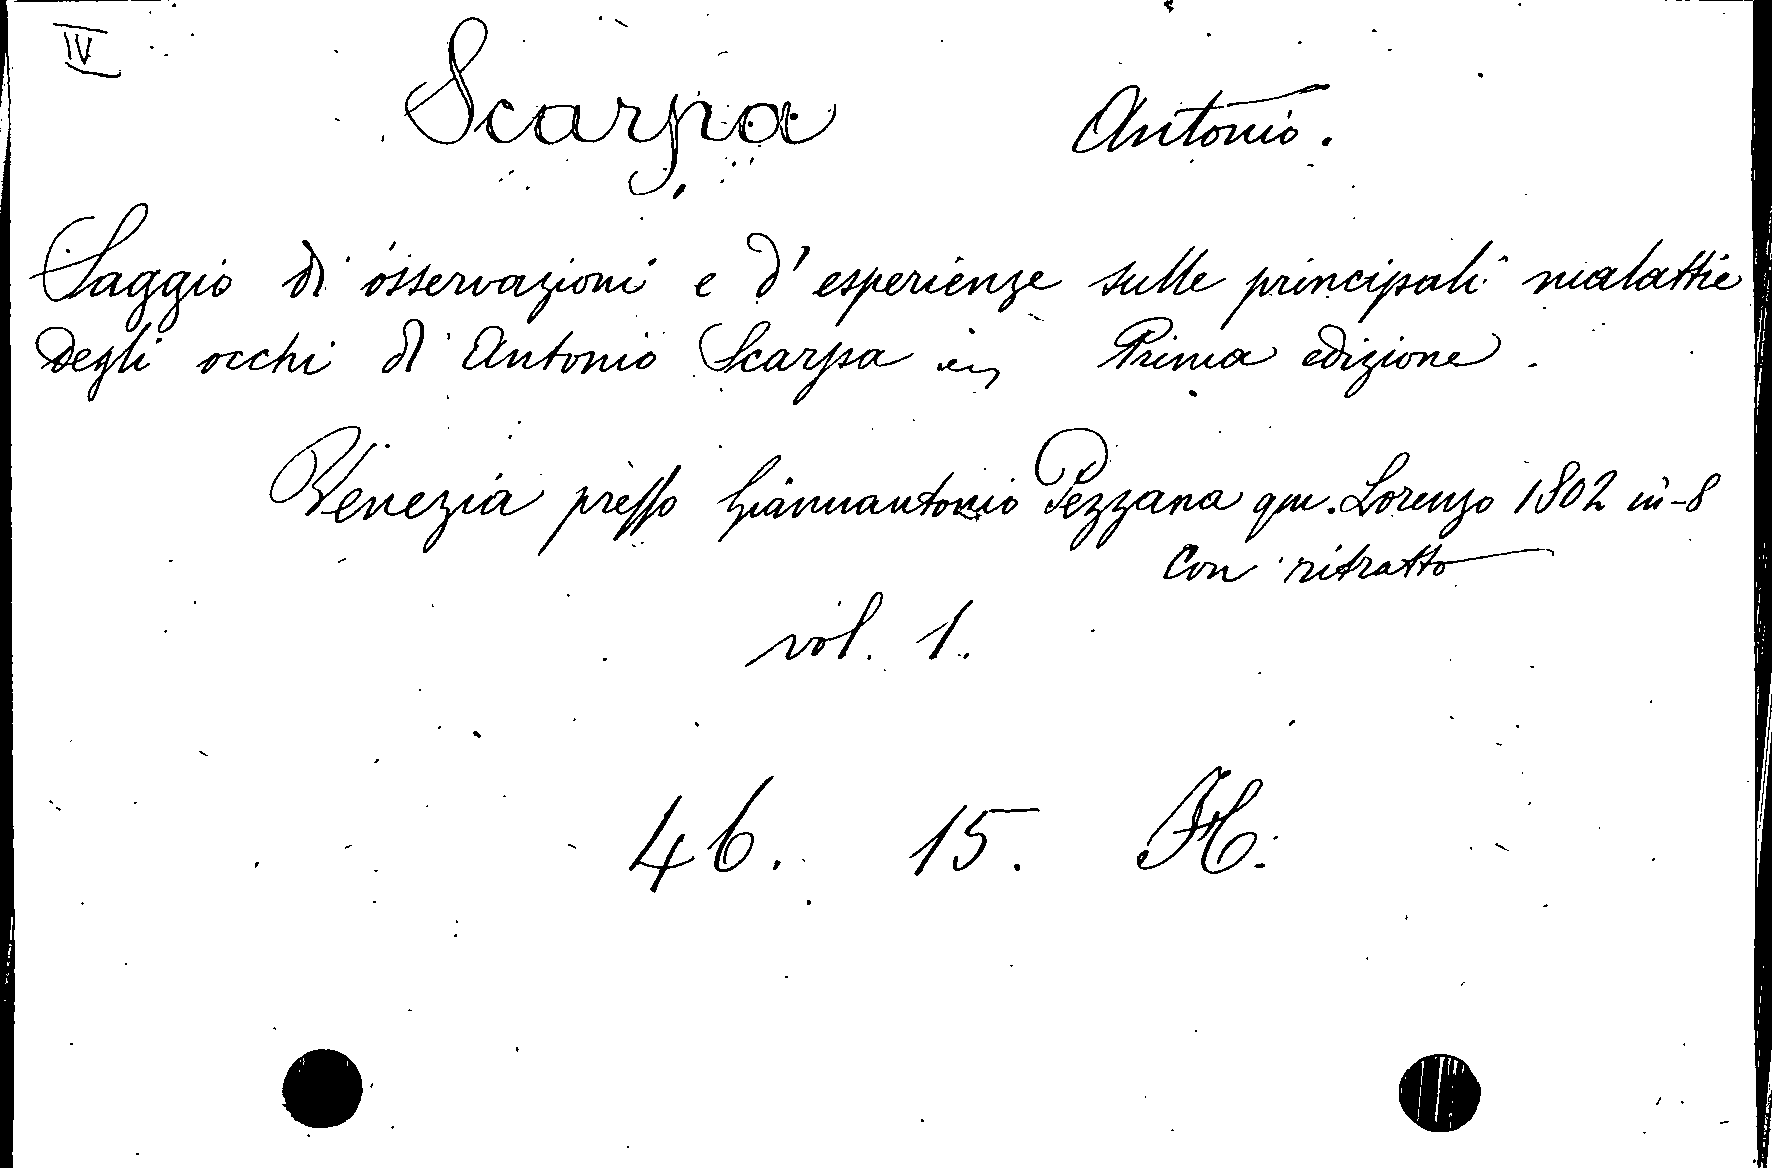 IV
Scarpa Antonio.
Saggio di osservazioni e d'esperienze sulle principali malattie
degli occhi di Antonio Scarpa Prima edizione.
Venezia presso Giannantonio Pezzana qm. Lorenzo 1802 in-8
con ritratto
vol. 1.
46. 15. H.